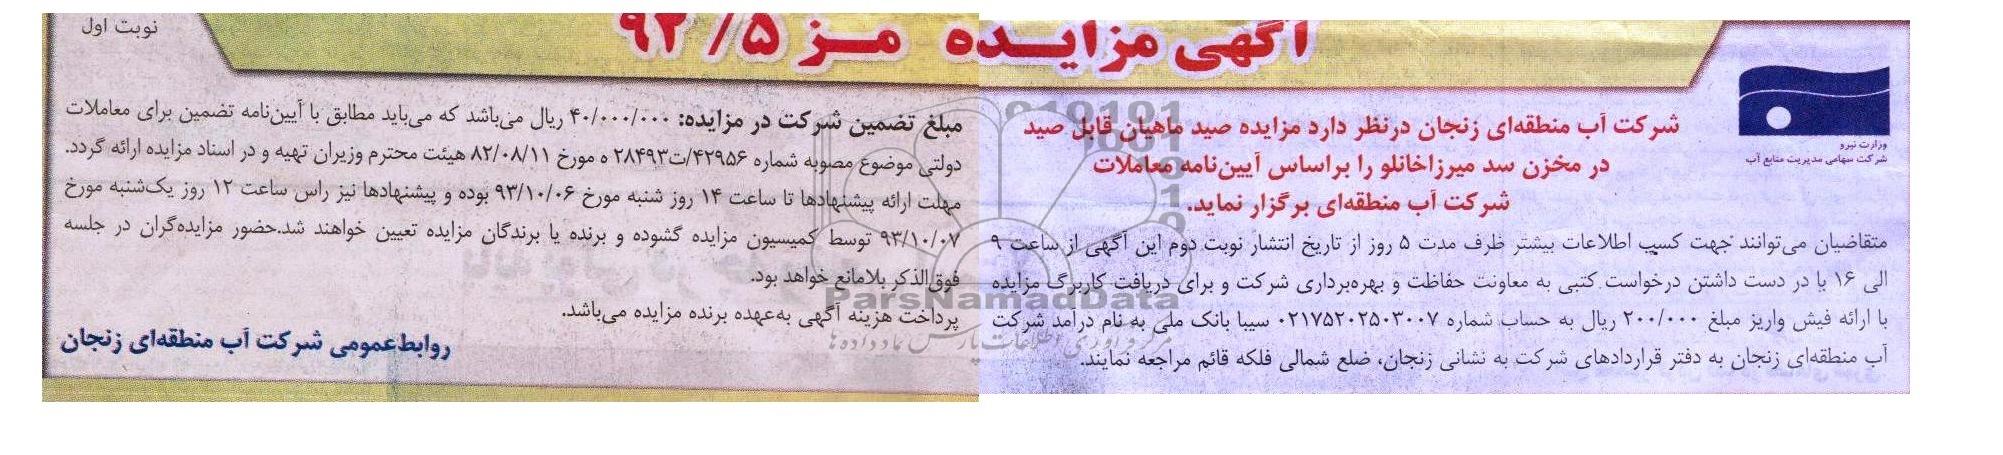 نوبت اول
آگهی مزایده مز ۹۲/۵
وزارت نیرو
شرکت سهامی مدیریت منابع آب
شرکت آب منطقه‌ای زنجان درنظر دارد مزایده صید ماهیان قابل صید
در مخزن سد میرزاخانلو را براساس آیین‌نامه معاملات
شرکت آب منطقه‌ای برگزار نماید.
متقاضیان می‌توانند جهت کسب اطلاعات بیشتر ظرف مدت ۵ روز از تاریخ انتشار نوبت دوم این آگهی از ساعت ۹
الی ۱۶ با در دست داشتن درخواست کتبی به معاونت حفاظت و بهره‌برداری شرکت و برای دریافت کاربرگ مزایده
با ارائه فیش واریز مبلغ ۲۰۰/۰۰۰ ریال به حساب شماره ۰۲۱۷۵۲۰۲۵۰۳۰۰۷ سیبا بانک ملی به نام درآمد شرکت
آب منطقه‌ای زنجان به دفتر قراردادهای شرکت به نشانی زنجان، ضلع شمالی فلکه قائم مراجعه نمایند.
مبلغ تضمین شرکت در مزایده: ۴۰/۰۰۰/۰۰۰ ریال می‌باشد که می‌باید مطابق با آیین‌نامه تضمین برای معاملات
دولتی موضوع مصوبه شماره ۴۲۹۵۶/ت۲۸۴۹۳ ه مورخ ۸۲/۰۸/۱۱ هیئت محترم وزیران تهیه و در اسناد مزایده ارائه گردد.
مهلت ارائه پیشنهادها تا ساعت ۱۴ روز شنبه مورخ ۹۳/۱۰/۰۶ بوده و پیشنهادها نیز راس ساعت ۱۲ روز یک‌شنبه مورخ
۹۳/۱۰/۰۷ توسط کمیسیون مزایده گشوده و برنده یا برندگان مزایده تعیین خواهند شد.حضور مزایده‌گران در جلسه
فوق‌الذکر بلامانع خواهد بود.
پرداخت هزینه آگهی به‌عهده برنده مزایده می‌باشد.
روابط‌عمومی شرکت آب منطقه‌ای زنجان
ParsNamadData